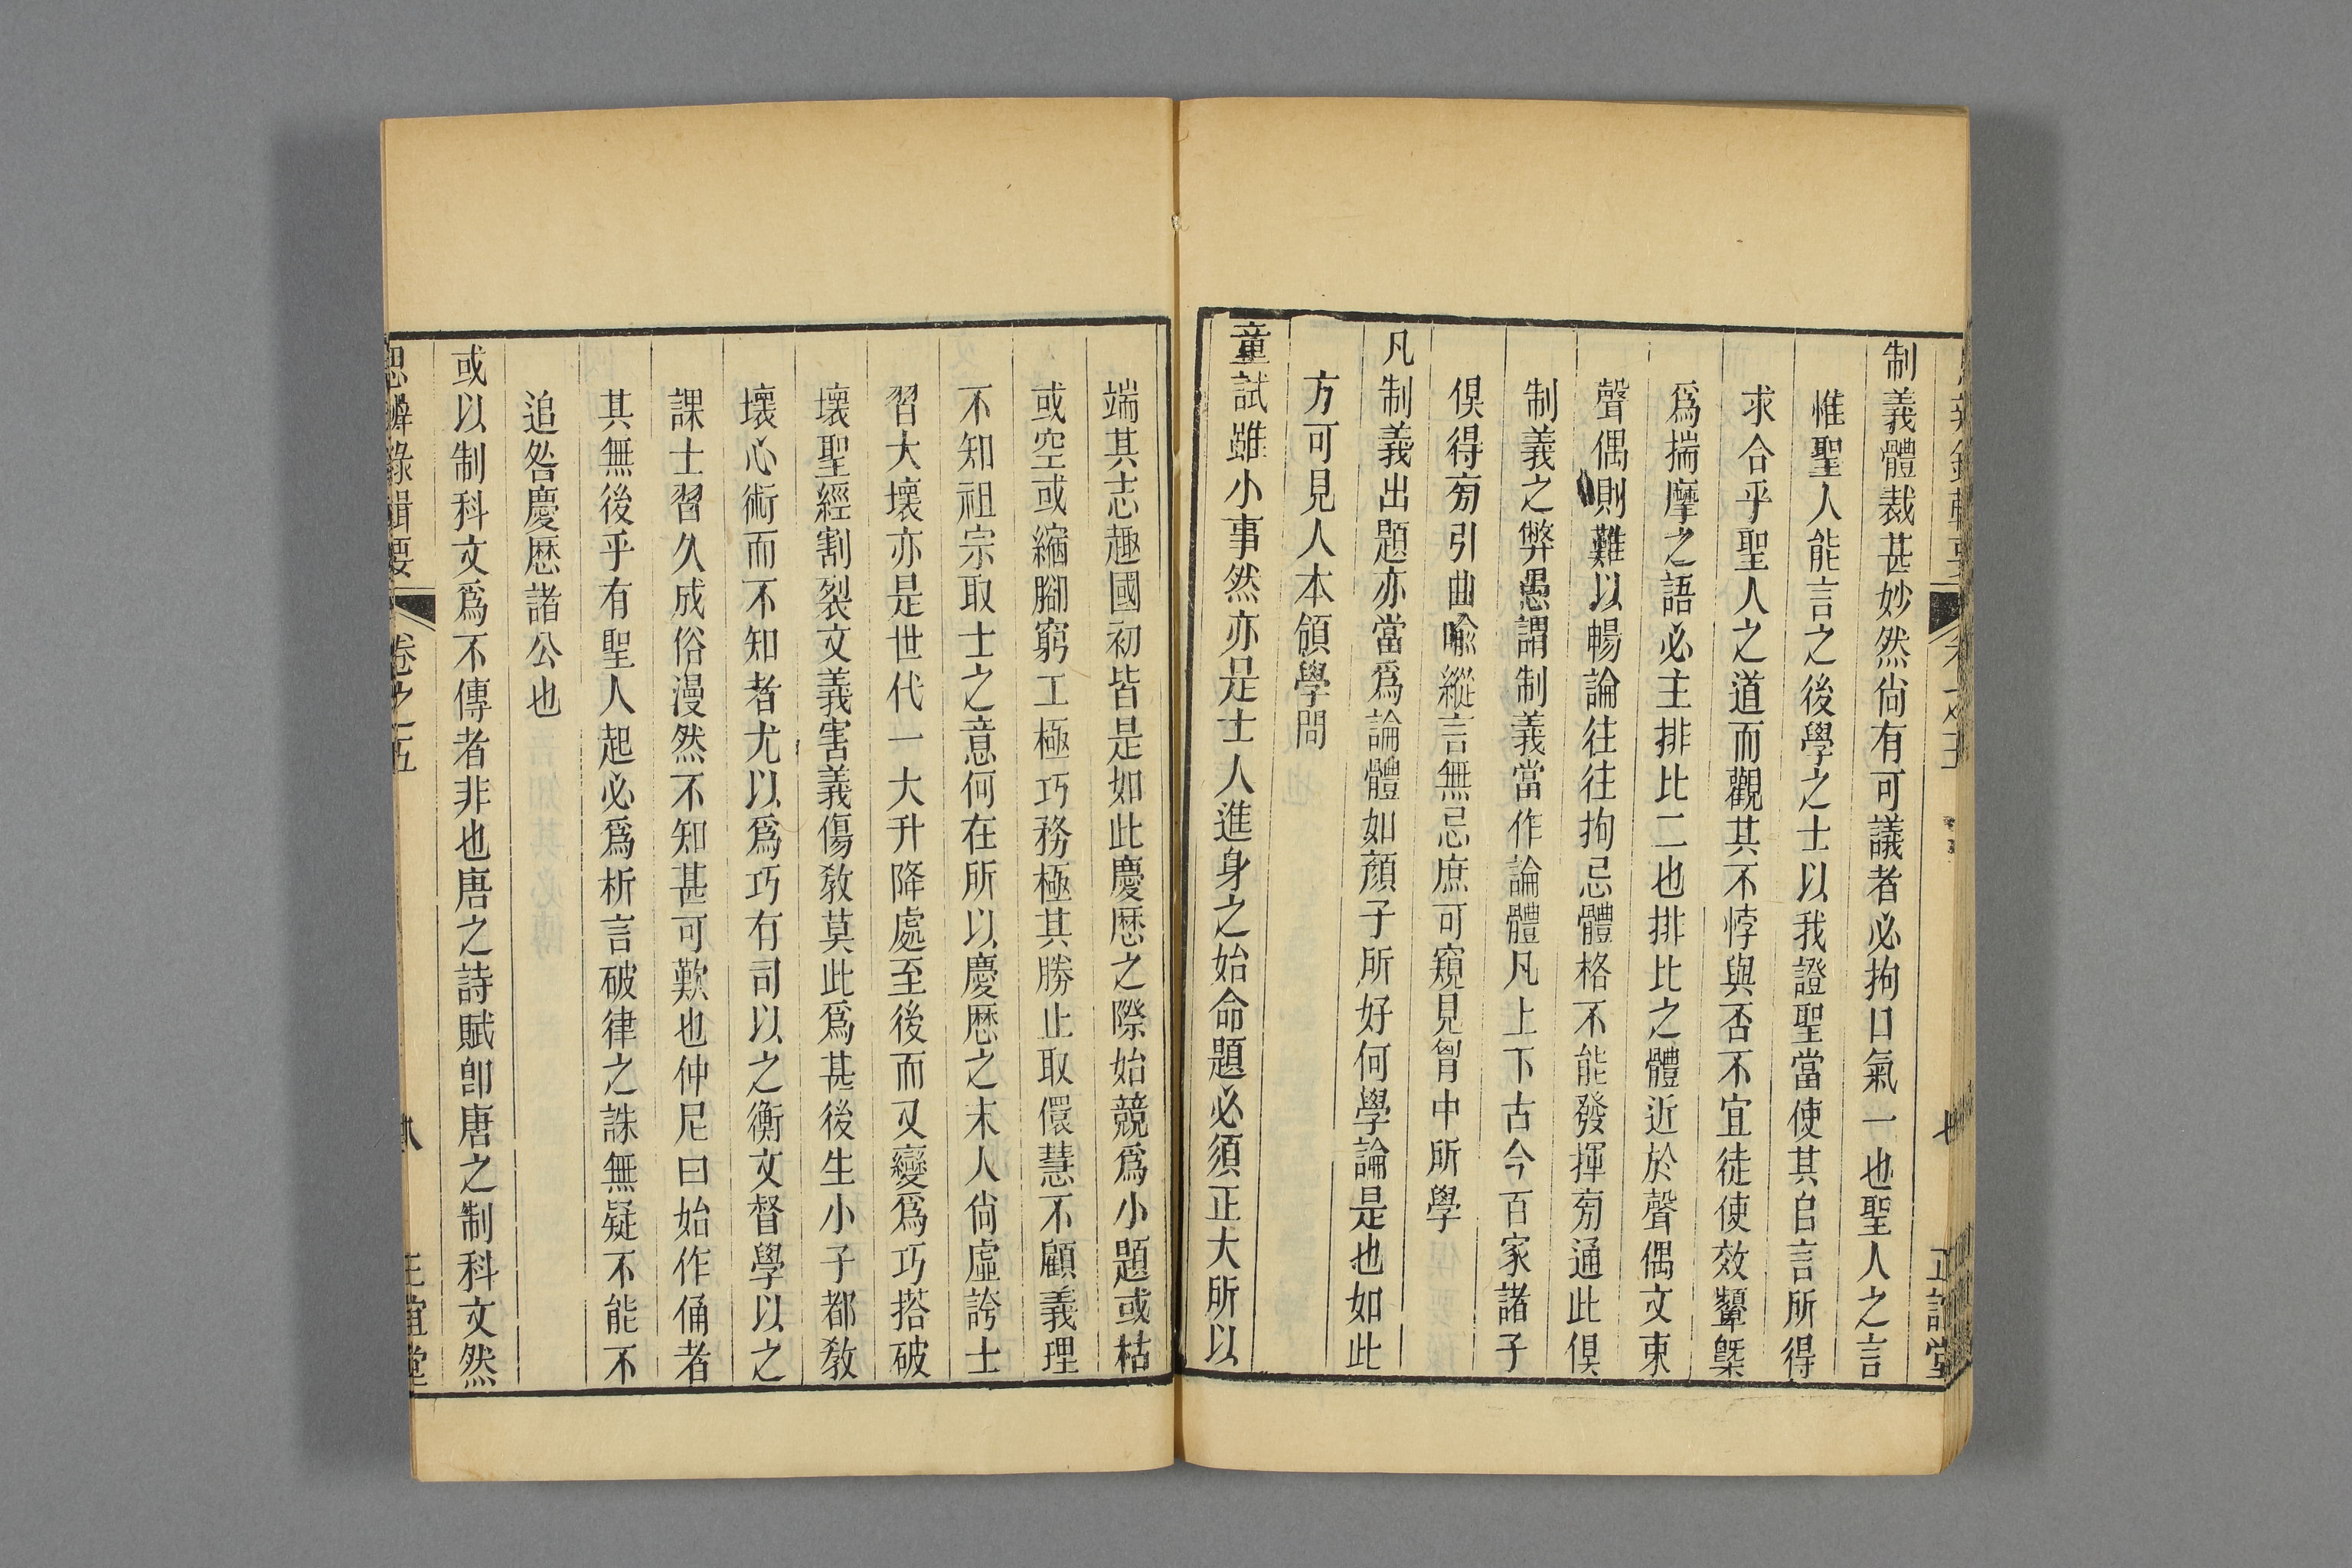 制義體裁甚妙然尙有可議者必拘口氣一也聖人之言
惟聖人能言之後學之士以我證聖當使其自言所得
求合乎聖人之道而觀其不悖與否不宜徒使效顰槩
爲揣摩之語必主排比二也排比之體近於聲偶文束
聲偶則難以暢論往往拘忌體格不能發揮旁通此俱
制義之弊愚謂制義當作論體凡上下古今百家諸子
俱得旁引曲喩縱言無忌庶可窺見胷中所學
凡制義出題亦當爲論體如顏子所好何學論是也如此
方可見人本領學問
童試雖小事然亦是士人進身之始命題必須正大所以
端其志趣國初皆是如此慶厯之際始競爲小題或枯
或空或縮腳窮工極巧務極其勝止取儇慧不顧義理
不知祖宗取士之意何在所以慶厯之末人尙虛誇士
習大壞亦是世代一大升降處至後而又變爲巧搭破
壞聖經割裂文義害義傷敎莫此爲甚後生小子都敎
壞心術而不知者尤以爲巧有司以之衡文督學以之
課士習久成俗漫然不知甚可歎也仲尼曰始作俑者
其無後乎有聖人起必爲析言破律之誅無疑不能不
追咎慶厯諸公也
或以制科文爲不傳者非也唐之詩賦卽唐之制科文然
思辨錄輯要
卷之五
八
正誼堂